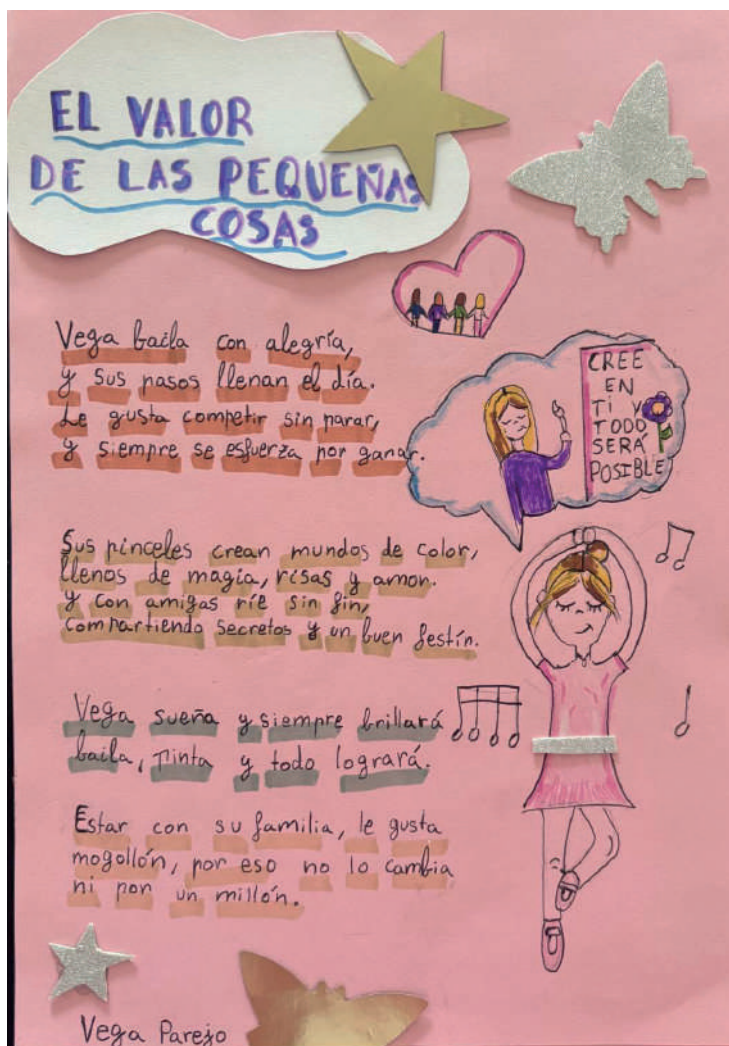 EL VALOR
DE LAS PEQUEÑAS
COSAS
Vega baila con alegría,
y sus pasos llenan el día.
Le gusta competir sin parar,
y siempre se esfuerza por ganar.
CREE
EN
TI Y
TODO
SERÁ
POSIBLE
Sus pinceles crean mundos de color,
llenos de magia, risas y amor.
y con amigas ríe sin fin,
compartiendo secretos y un buen festín.
Vega sueña y siempre brillará
baila, pinta y todo logrará.
Estar con su familia, le gusta
mogollón, por eso no lo cambia
ni por un millón.
Vega Parejo